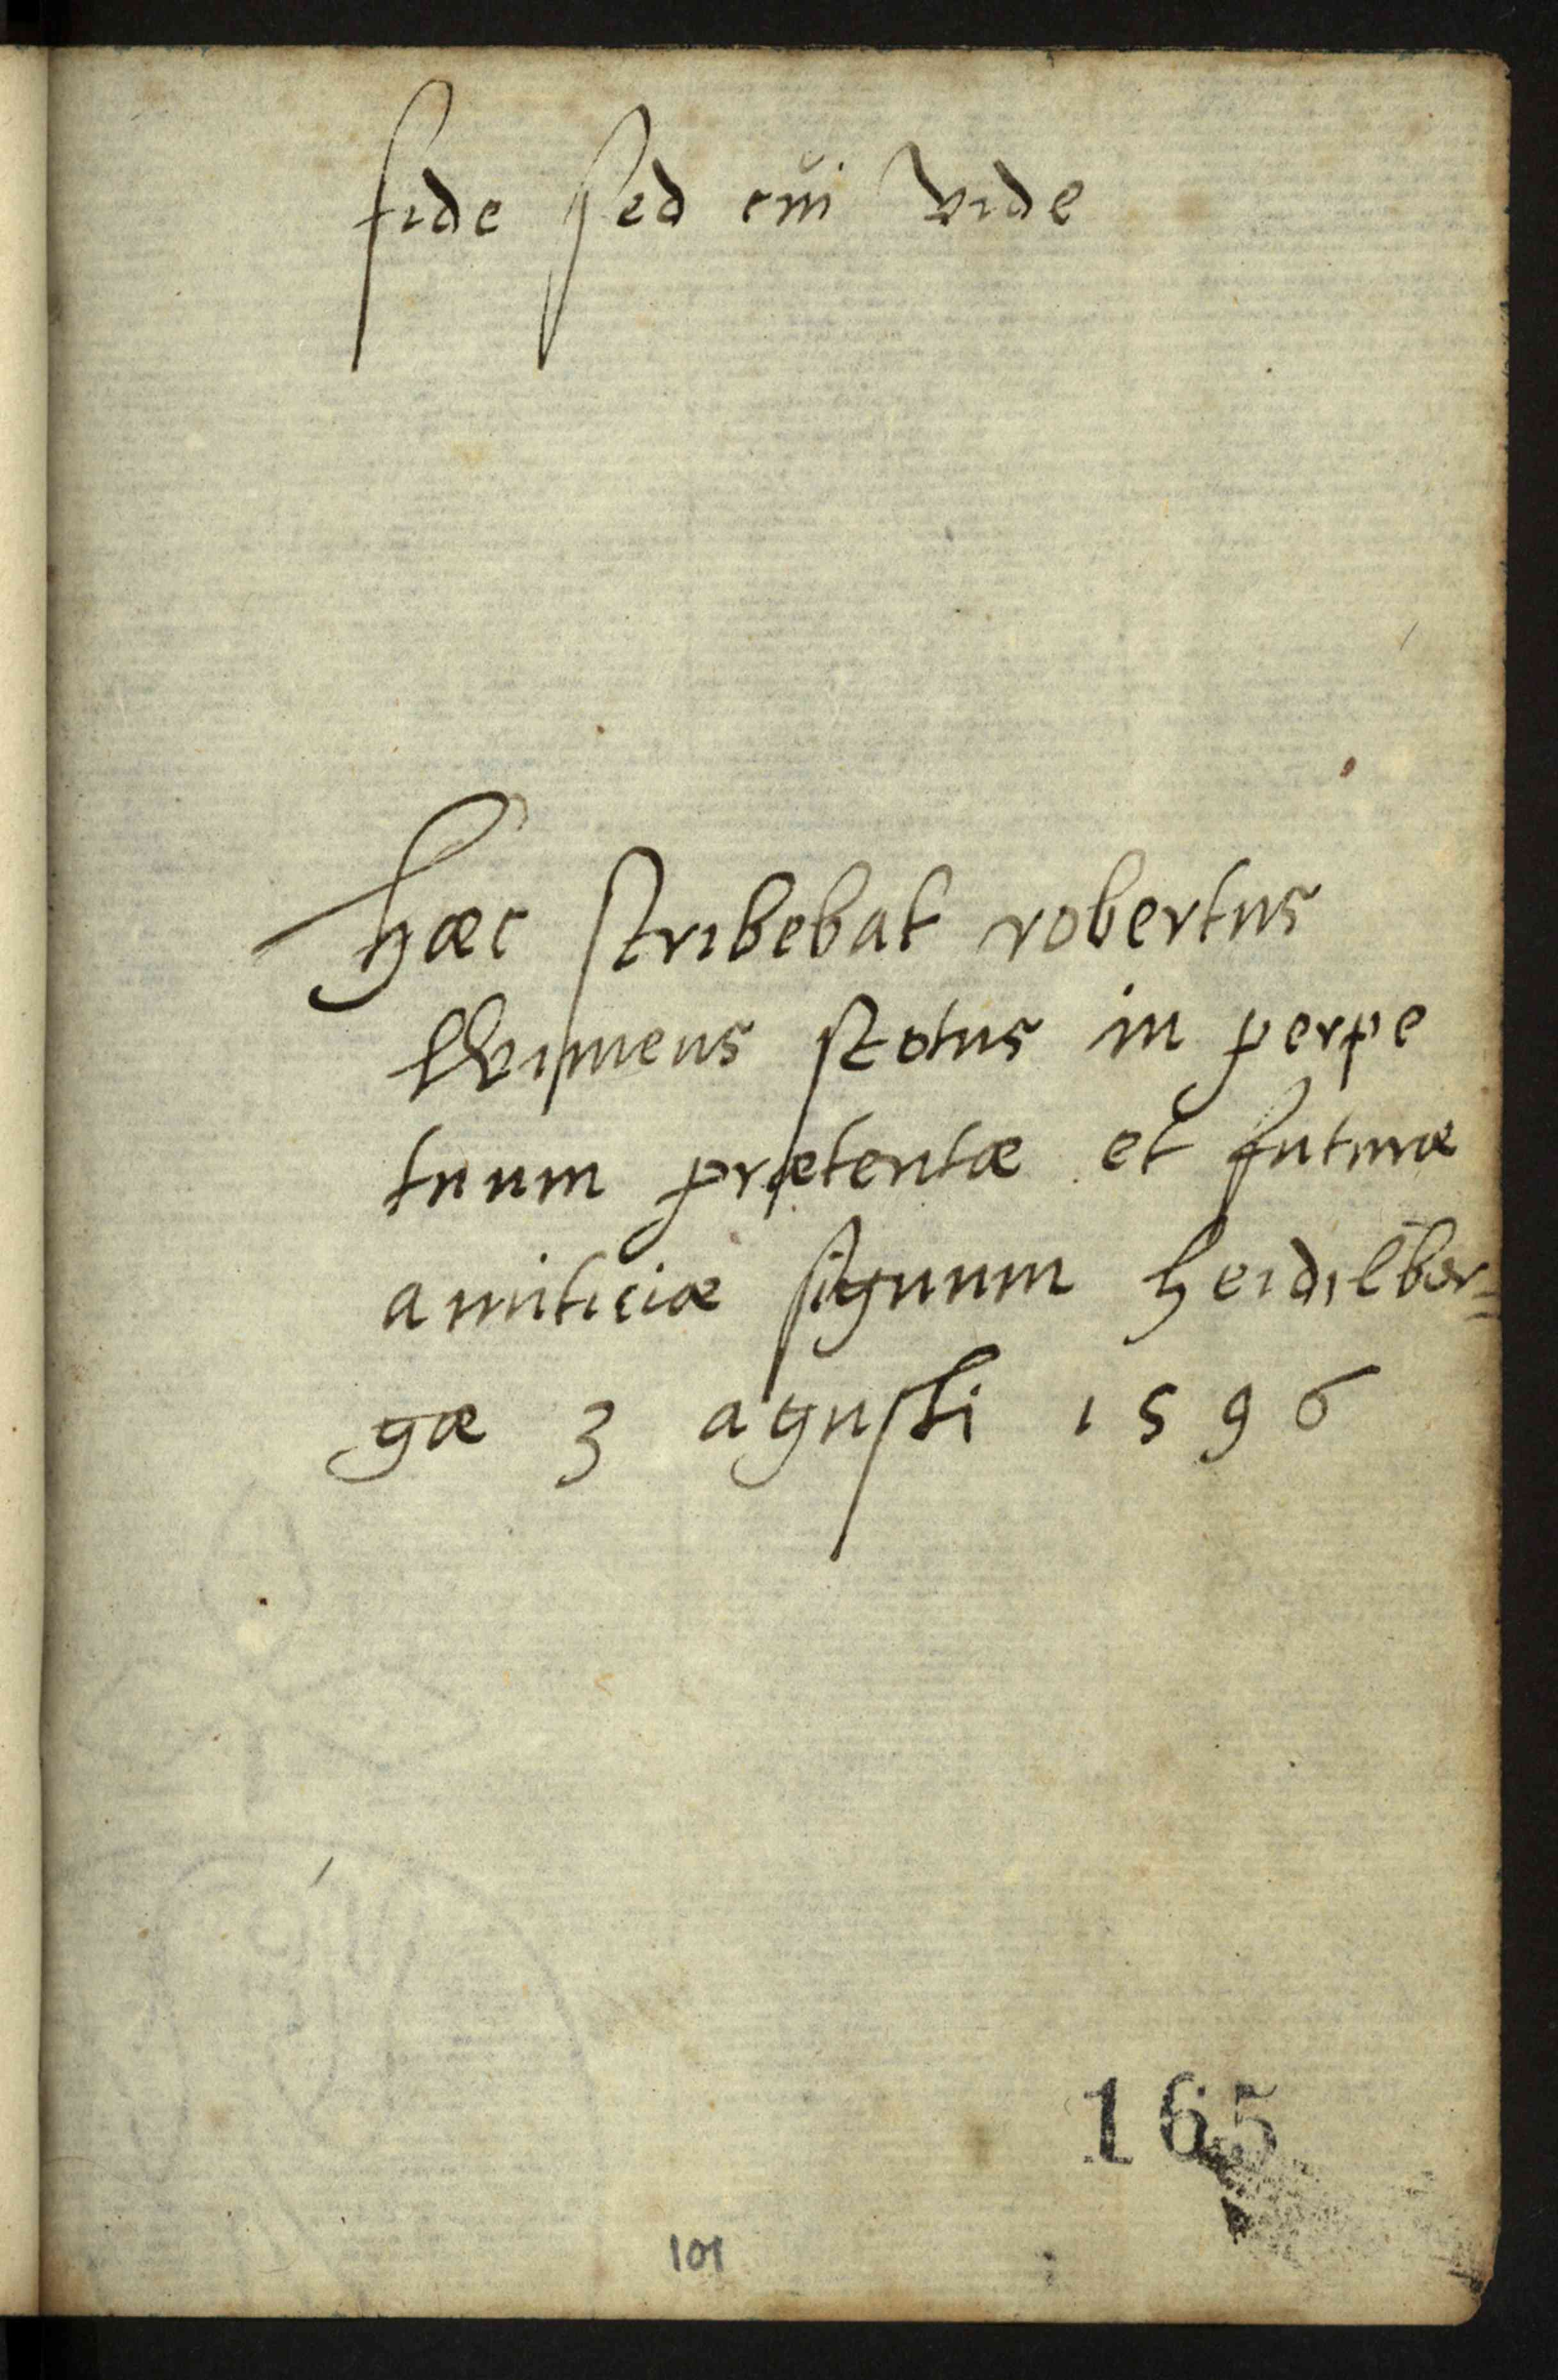 fide sed cui vide
hæc scribebat robertus
scotus in perpe
tuum prætentæ et futuræ
amiticiæ signum heidilber=
gæ 3 agusti 1596
165
101